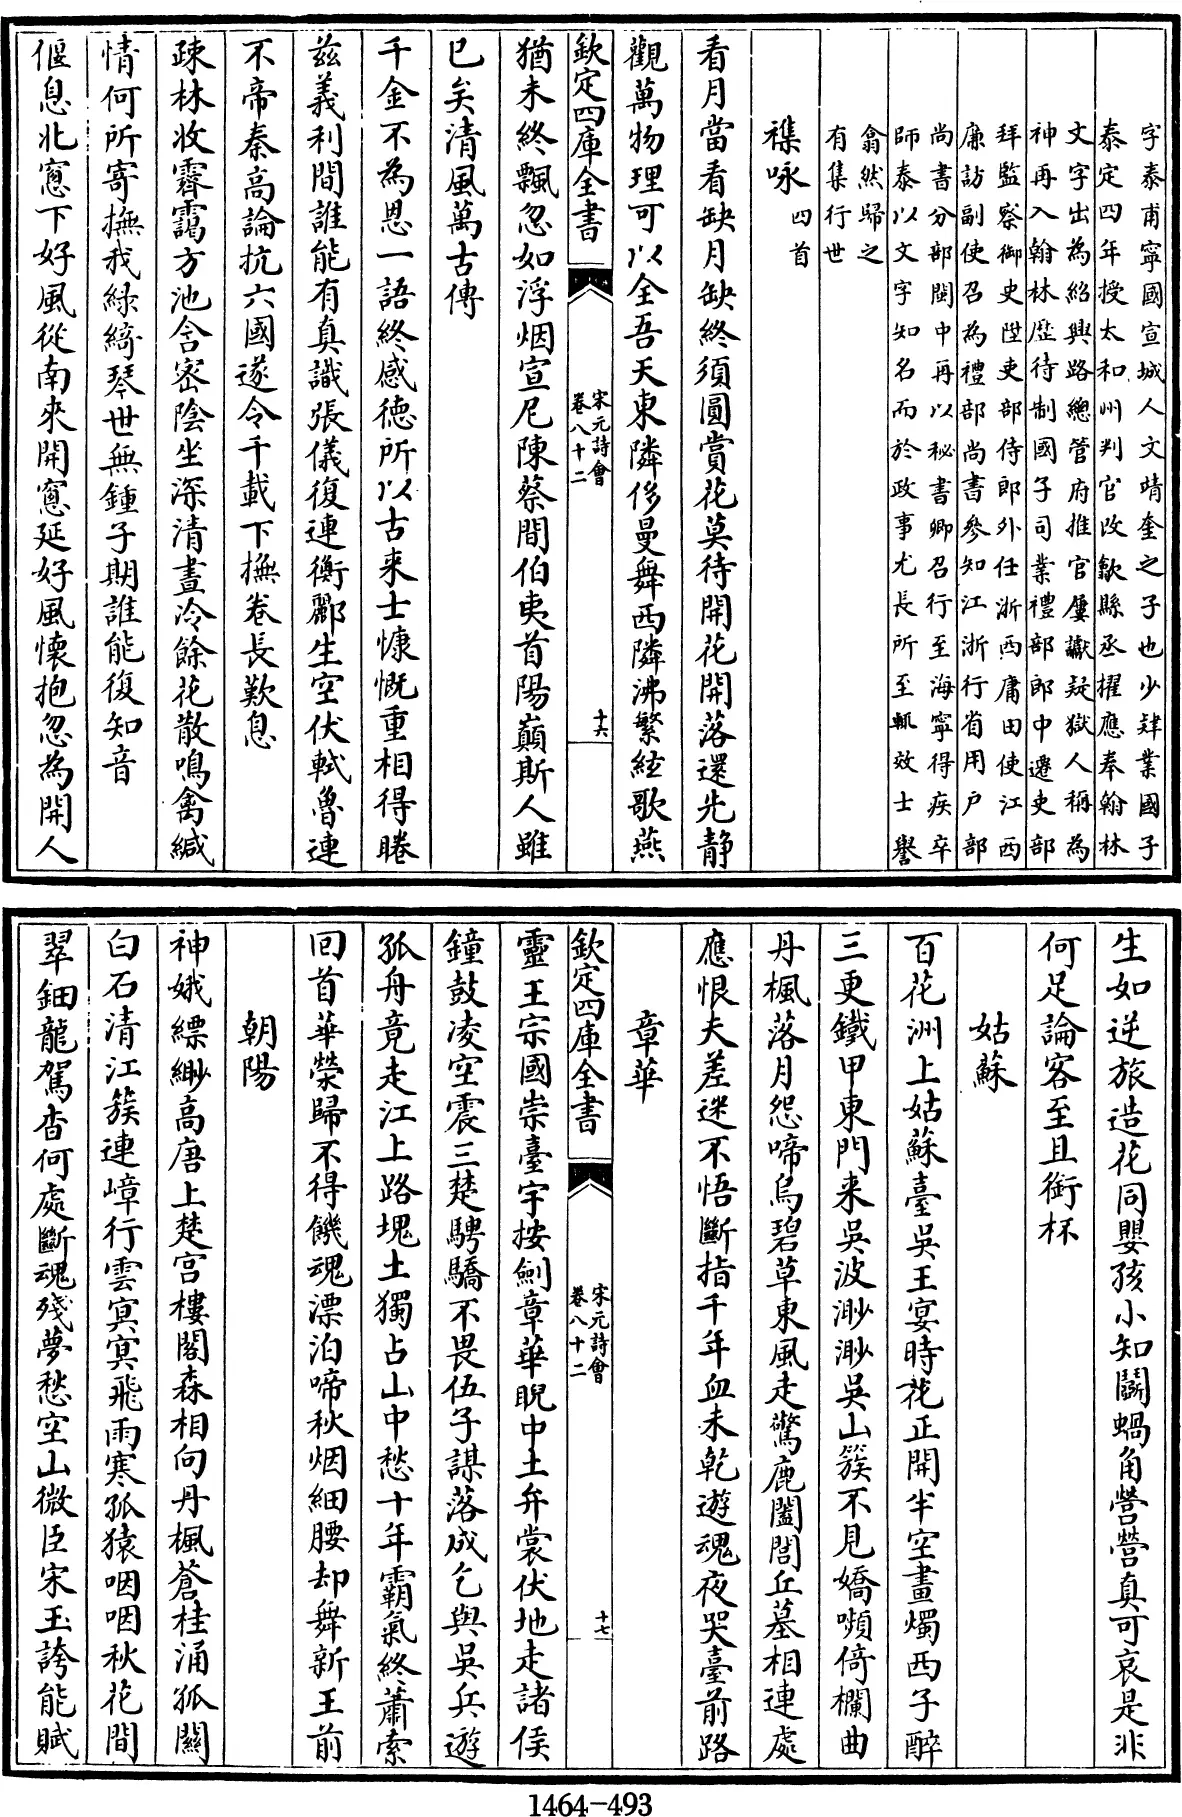 字泰甫寧國宣城人文靖奎之子也少肄業國子
泰定四年授太和州判官改歙縣丞擢應奉翰林
文字出為紹興路總管府推官屢讞疑獄人稱為
神再入翰林歷待制國子司業禮部郎中遷吏部
拜監察御史陞吏部侍郎外任浙西庸田使江西
廉訪副使召為禮部尚書參知江浙行省用户部
尚書分部閩中再以秘書卿召行至海寧得疾卒
師泰以文字知名而於政事尤長所至輒效士譽
翕然歸之
有集行世
襍咏四首
看月當看缺月缺終須圓賞花莫待開花開落還先静
觀萬物理可以全吾天東隣侈曼舞西隣沸繁絃歌燕
欽定四庫全書
宋元詩會
卷八十二
十六
猶未終飄忽如浮烟宣尼陳蔡間伯夷首陽巔斯人雖
已矣清風萬古傳
千金不為恩一語終感德所以古来士慷慨重相得睠
茲義利間誰能有真識張儀復連衡酈生空伏軾魯連
不帝秦高論抗六國遂令千載下撫卷長歎息
疎林收霽靄方池含密陰坐深清晝冷餘花散鳴禽緘
情何所寄撫我緑綺琴世無鍾子期誰能復知音
偃息北窻下好風從南來開窻延好風懷抱忽為開人
生如逆旅造花同嬰孩小知鬭蝸角營營真可哀是非
何足論客至且銜杯
姑蘇
百花洲上姑蘇臺吳王宴時花正開半空畫燭西子醉
三更鐵甲東門来吳波渺渺吳山簇不見嬌嚬倚欄曲
丹楓落月怨啼烏碧草東風走驚鹿闔閭丘墓相連處
應恨夫差迷不悟斷指千年血未乾遊魂夜哭臺前路
章華
欽定四庫全書
宋元詩會
卷八十二
十七
靈王宗國崇臺宇按劍章華睨中土弁裳伏地走諸侯
鐘鼓凌空震三楚騁驕不畏伍子謀落成乞與吳兵遊
孤舟竟走江上路塊土獨占山中愁十年霸氣終蕭索
回首華榮歸不得饑魂漂泊啼秋烟細腰却舞新王前
朝陽
神娥縹緲高唐上楚宮樓閣森相向丹楓蒼桂涌孤闕
白石清江簇連嶂行雲冥冥飛雨寒孤猿咽咽秋花間
翠鈿龍駕杳何處斷魂殘夢愁空山微臣宋玉誇能賦
1464-493